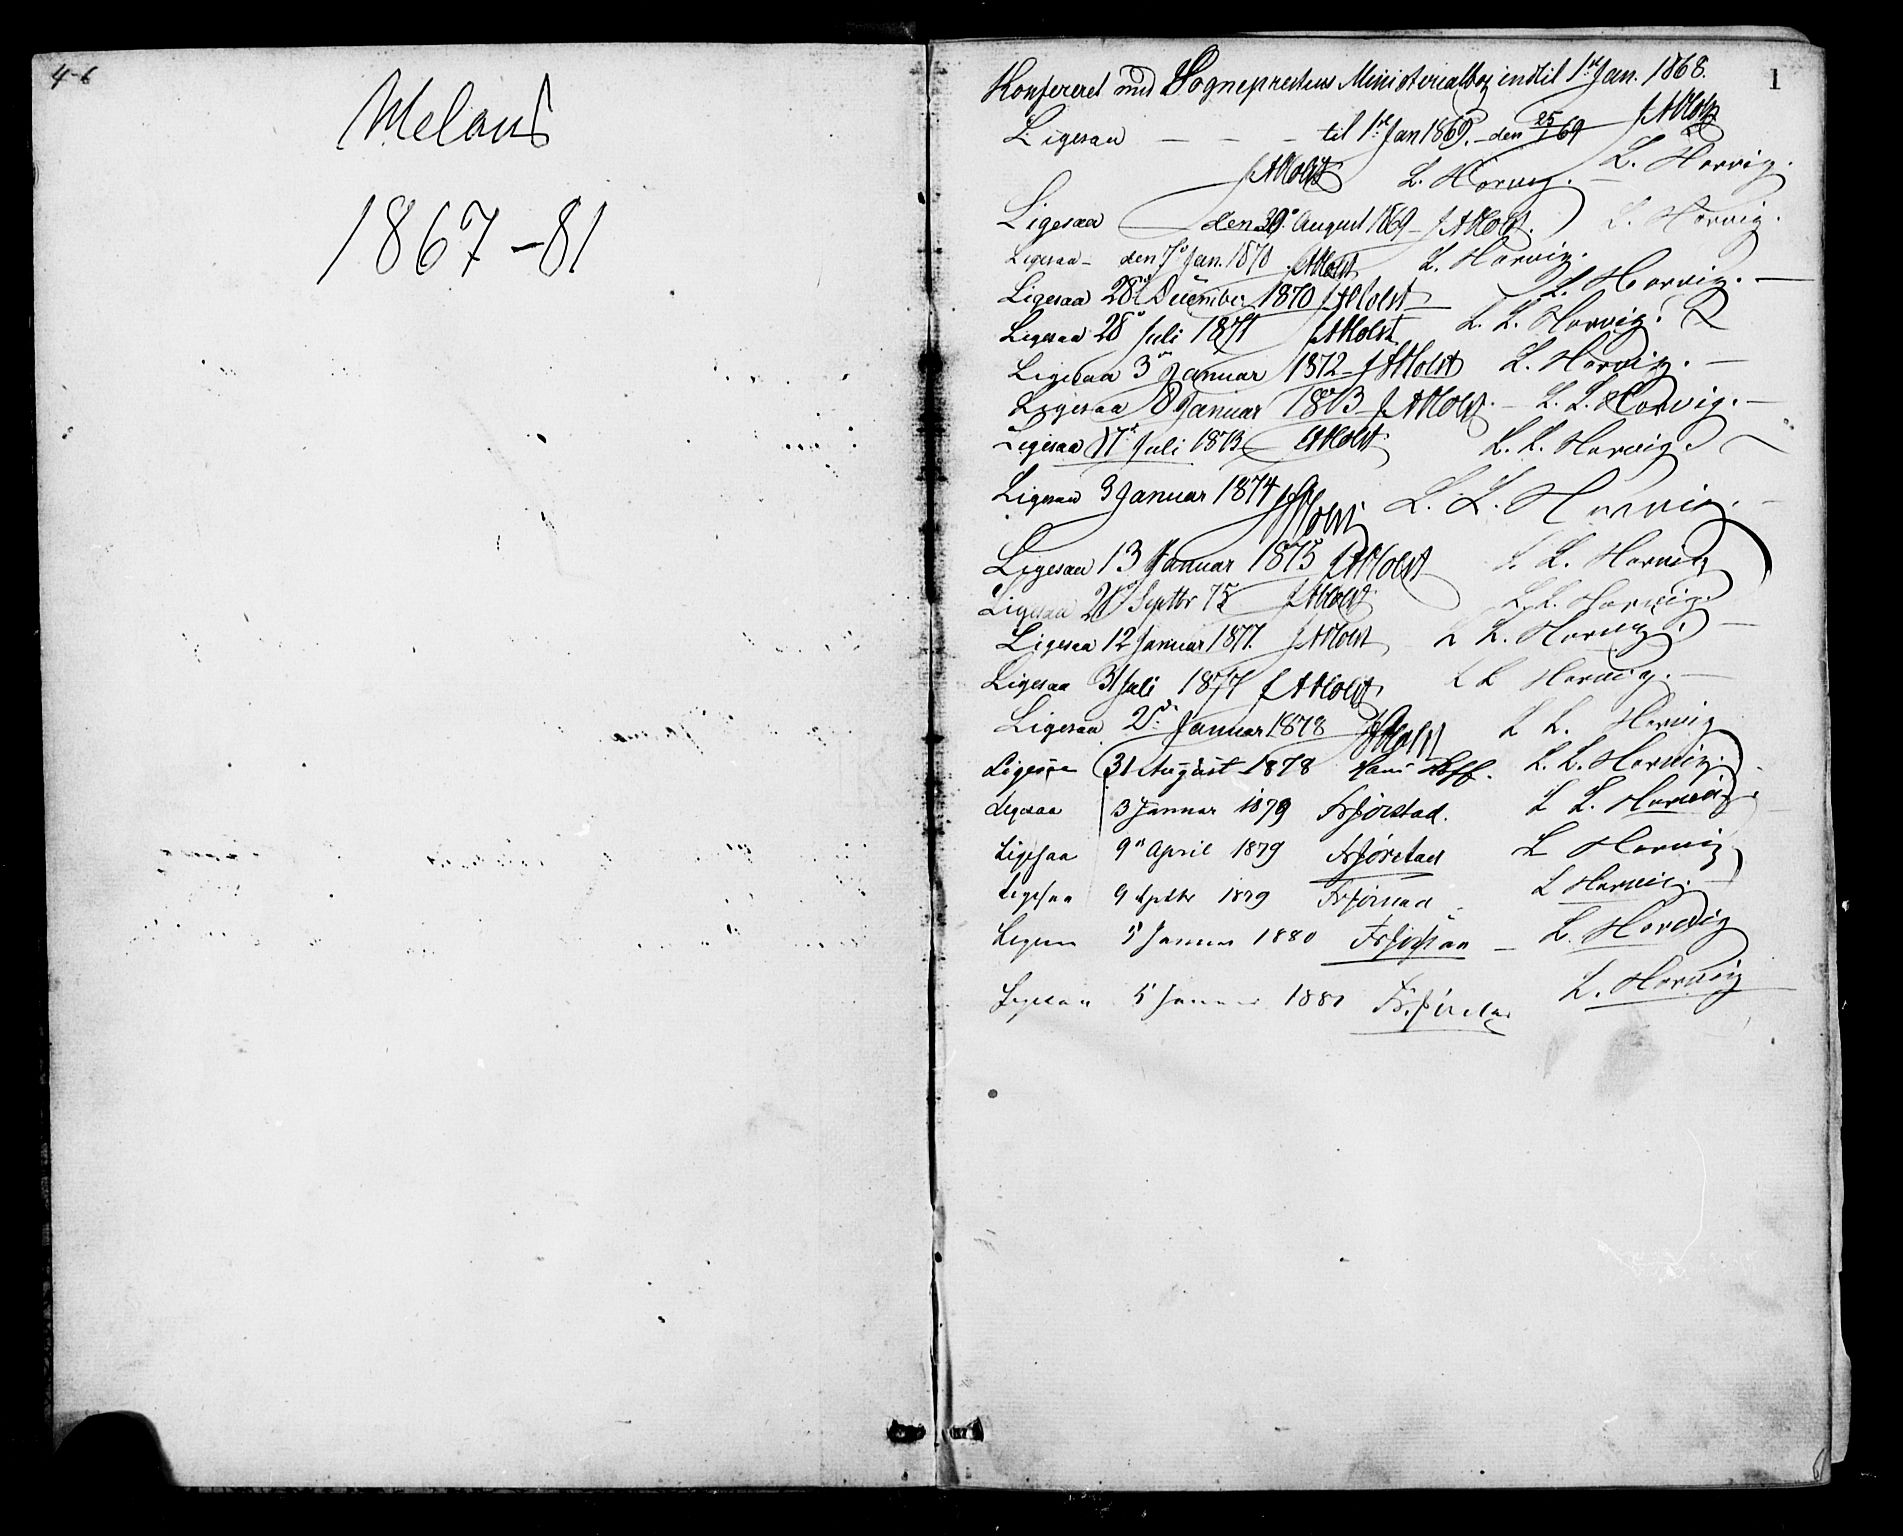 4-6
Melaus
1867-81
1
Konfereret med Sogneprestens Ministerialbog indtil 1ste Jan. 1868.
JAHolst
Ligesaa - - - til 1ste Jan 1869. - den 25/1 69
JAHolst L. Horvig. L. Horvig.
Ligesaa den 30te August 1869 - JAHolst. L. Horvig.
Ligesaa - den 7de Jan. 1870 JAHolst L. Horvig.
Ligesaa 28de December 1870 JAHolst L. Horvig.
Ligesaa 28de Juli 1871 JAHolst L. L. Horvig.
Ligesaa 3die Januar 1872 - JAHolst L. Horvig.
Ligesaa 8 Januar 1873 - JAHolst - L. L. Horvig.
Ligesaa 17de Juli 1873 JAHolst. L. L. Horvig.
Ligesaa 3 Januar 1874 JAHolst L. L. Horvig.
Ligesaa 13 Januar 1875 JAHolst L. L. Horvig
Ligesaa Septbr 75 JAHolst L. L. Horvig
Ligesaa 12 Januar 1877. JAHolst L L. Horvig.
Ligesaa 31 Juli 1877 JAHolst L L Horvig.
Ligesaa 2den Januar 1878 JAHolst L L. Horvig
Ligesaa 31 August 1878 Hans L. L. Horvig.
Ligesaa 3 Januar 1879 L L. Horvig.
Ligesaa 9de April 1879 L Horvig
Ligesaa 9 Septbr 1879 L Horvig.
Ligesaa 5 Januar 1880 L. Horvig
Ligesaa 5 Januar 1881 L. Horvig